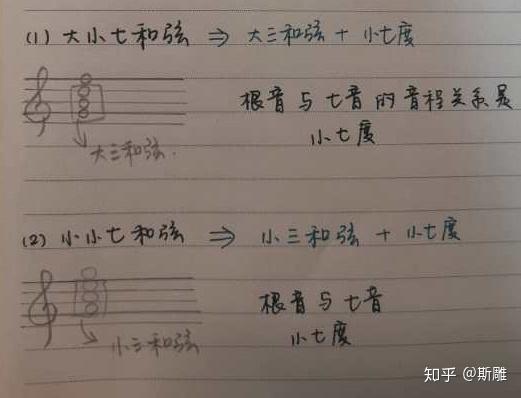 (1) 大小七和弦 ⇒ 大三和弦 + 小七度
根音与七音的音程关系是
小七度
大三和弦.
(2) 小小七和弦 ⇒ 小三和弦 + 小七度
根音与七音
小七度
小三和弦
知乎 @斯雕